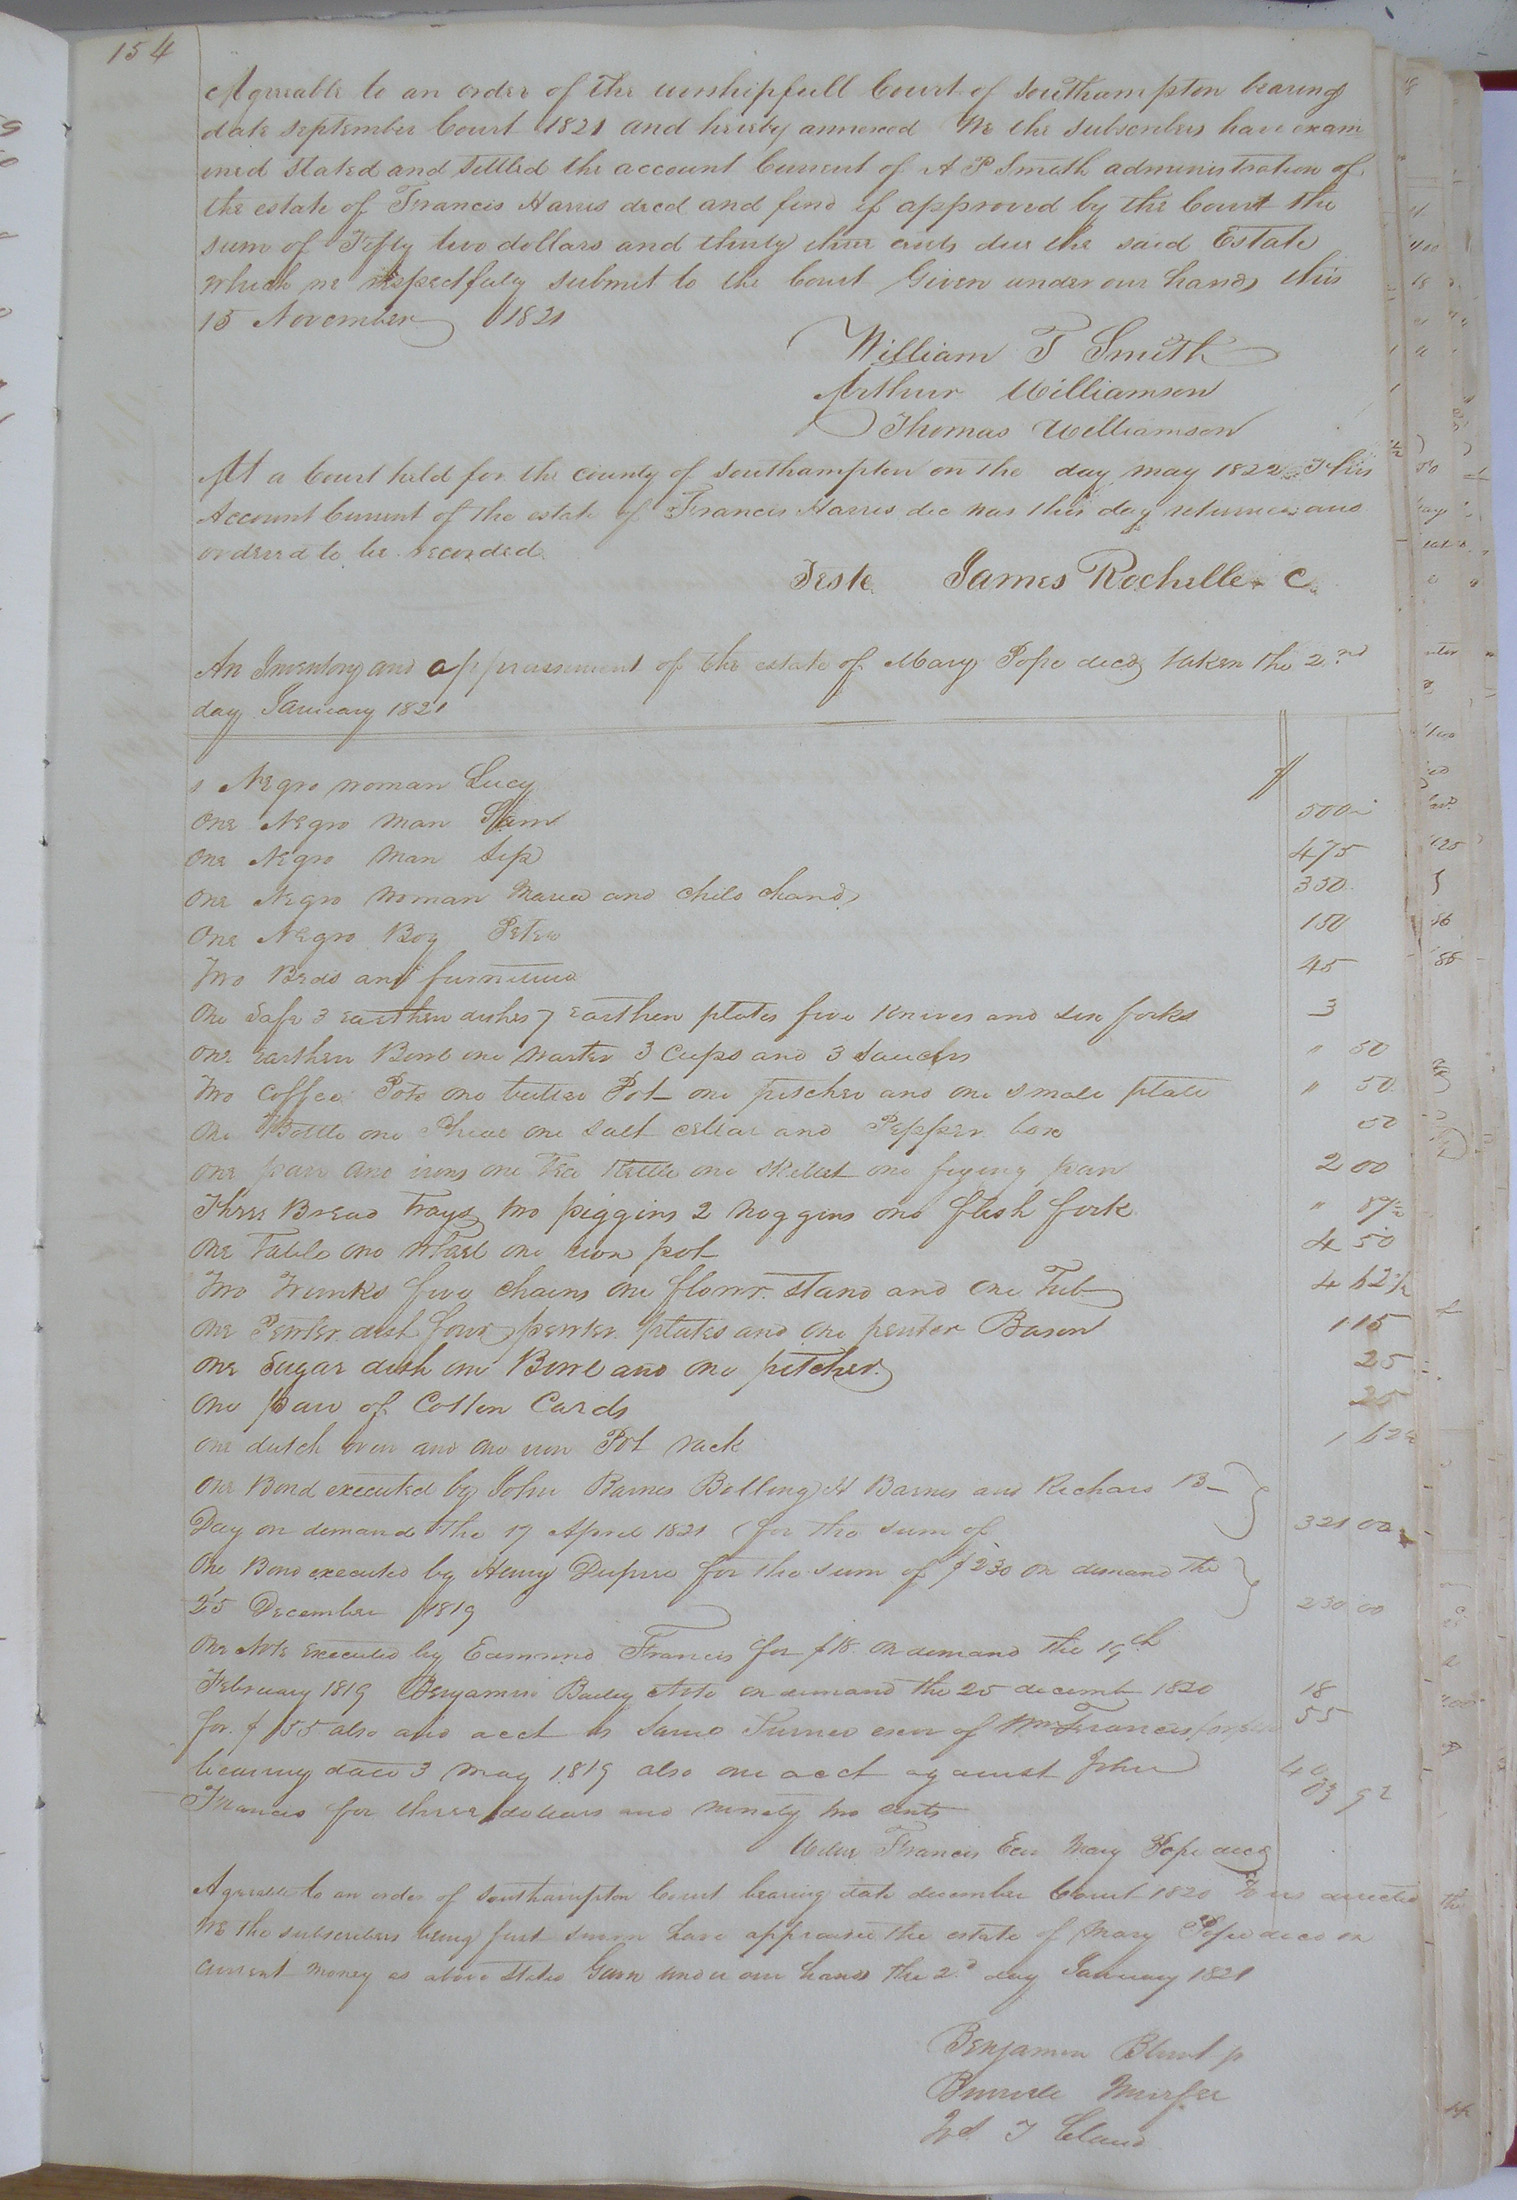 154
Agreeable to an order of the worshipfull Court of Southampton bearing
date september Court 1821 and hereby annexed We the subscribers have exam
ined stated and settled the account Current of A P Smith administration of
the estate of Francis Harris decd and find if approved by the Court the
sum of Fifty two dollars and thirty three cents due the said Estate
which we respectfuly submit to the Court Given under our hands this
15 November 1821
William T Smith
Arthur Williamson
Thomas Williamson
At a Court held for the county of Southampton on the day may 1822 This
Account Current of the estate of Francis Harris dec was this day returned and
ordered to be recorded
Teste James Rochelle C
An Inventory and appraisement of the estate of Mary Pope decd taken the 2nd
day January 1821
1 Negro woman Lucy
One Negro man Sam 500
One Negro man Sip 475
One Negro woman Maria and child 350
One Negro Boy Peter 150
Two Beds and furniture 45
One Safe 3 earthen dishes 7 earthen plates five Knives and six forks 3
One earthen Bowl one waiter 3 Cups and 3 Saucers " 50
Two Coffee Pots one butter Pot one pitcher and one small plate " 50
One Bottle one one salt cellar and Pepper box 50
One pair and irons one Tea Kettle one skillet one frying pan 2 00
Three Bread Trays two piggins 2 noggins one flesh fork " 87½
One Table one one iron pot 4 50
Two Trunks five chairs one flowr. stand and one Tub 4 62½
One Pewter dish four pewter plates and one pewter Bason 1 15
One Sugar dish one Bowl and one pitcher 25
One pair of Cotton Cards 25
One dutch oven and one iron Pot rack 1 62½
One Bond executed by John Barnes Bolling H Barnes and Richard B
Day on demand the 17 April 1821 for the sum of 321 00
One Bond executed by Henry Dupree for the sum of $230 on demand the
25 December 1819 230 00
One Note executed by Edmund Francis for $18 on demand the 19th
February 1819 Benjamin Bailey Note on demand the 25 decemb 1820 18
for $55 also and acct vs Turner exor of Wm Francis 55
bearing date 3 may 1819 also one acct against John 40
Francis for three dollars and ninety two cents 03 92
Francis Exr Mary Pope decd
Agreeable to an order of Southampton Court bearing date december Court 1820 to us directed
We the subscribers being first sworn have appraised the estate of Mary Pope decd in
current money as above stated Given under our hands the 2d day January 1821
Benjamin Blunt jr